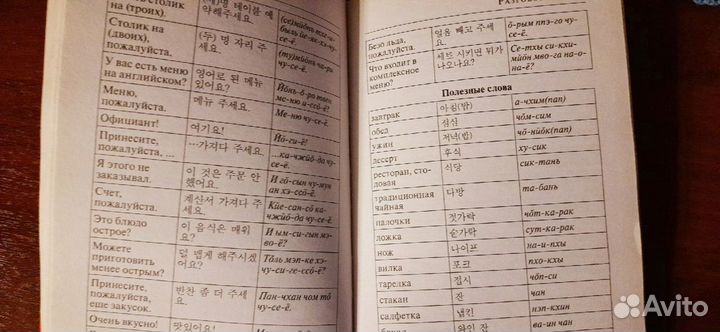 столик
на (троих).
(세)명 테이블 예
약해주세요?
Столик на
(двоих),
пожалуйста.
(두) 명 자리 주세
요.
(ту)мйонъ ча-ри
чу-се-ё.
У вас есть меню
на английском?
영어로 된 메뉴
있어요?
Меню,
пожалуйста.
메뉴 주세요.
Ме-ню чу-се-ё.
Официант!
여기요!
Йо-ги-ё!
Принесите,
пожалуйста, ...
...가져다 주세요.
...ка-чжйо-да чу-
се-ё.
Я этого не
заказывал.
이 것은 주문 안
했어요.
И го-сын чу-мун
ан хэ-ссо-ё.
Счет,
пожалуйста.
계산서 가져다 주
세요.
Кйе-сан-со ка-
чжйо-да чу-се-ё.
Это блюдо
острое?
이 음식은 매워
요?
И ым-си-гын мэ-
во-ё?
Можете
приготовить
менее острым?
덜 맵게 해주시겠
어요?
Толь мэп-ке хэ-
чу-си-ге-ссо-ё?
Принесите,
пожалуйста,
еще закусок.
반찬 좀 더 주세
요.
Пан-чхан чом то
чу-се-ё.
Очень вкусно!
맛있어요!
Безо льда,
пожалуйста.
얼음 빼고 주세
요.
о-рым ппэ-го чу-
се-ё.
Что входит в
комплексное
меню?
세트 시키면 뭐가
나오나요?
Се-тхы си-кхи-
мйон мво-га на-о-
на-ё?
Полезные слова
завтрак 아침(밥) а-чхим(пап)
обед 점심 чом-сим
ужин 저녁(밥) чо-нйок(пап)
десерт 후식 ху-сик
ресторан, сто-
ловая
식당 сик-тань
традиционная
чайная
다방 та-бань
палочки 젓가락 чот-ка-рак
ложка 숟가락 сут-ка-рак
нож 나이프 на-и-пхы
вилка 포크 пхо-кхы
тарелка 접시 чоп-си
стакан 잔 чан
салфетка 냅킨 нэп-кхин
와인 잔 ва-ин чан
Avito